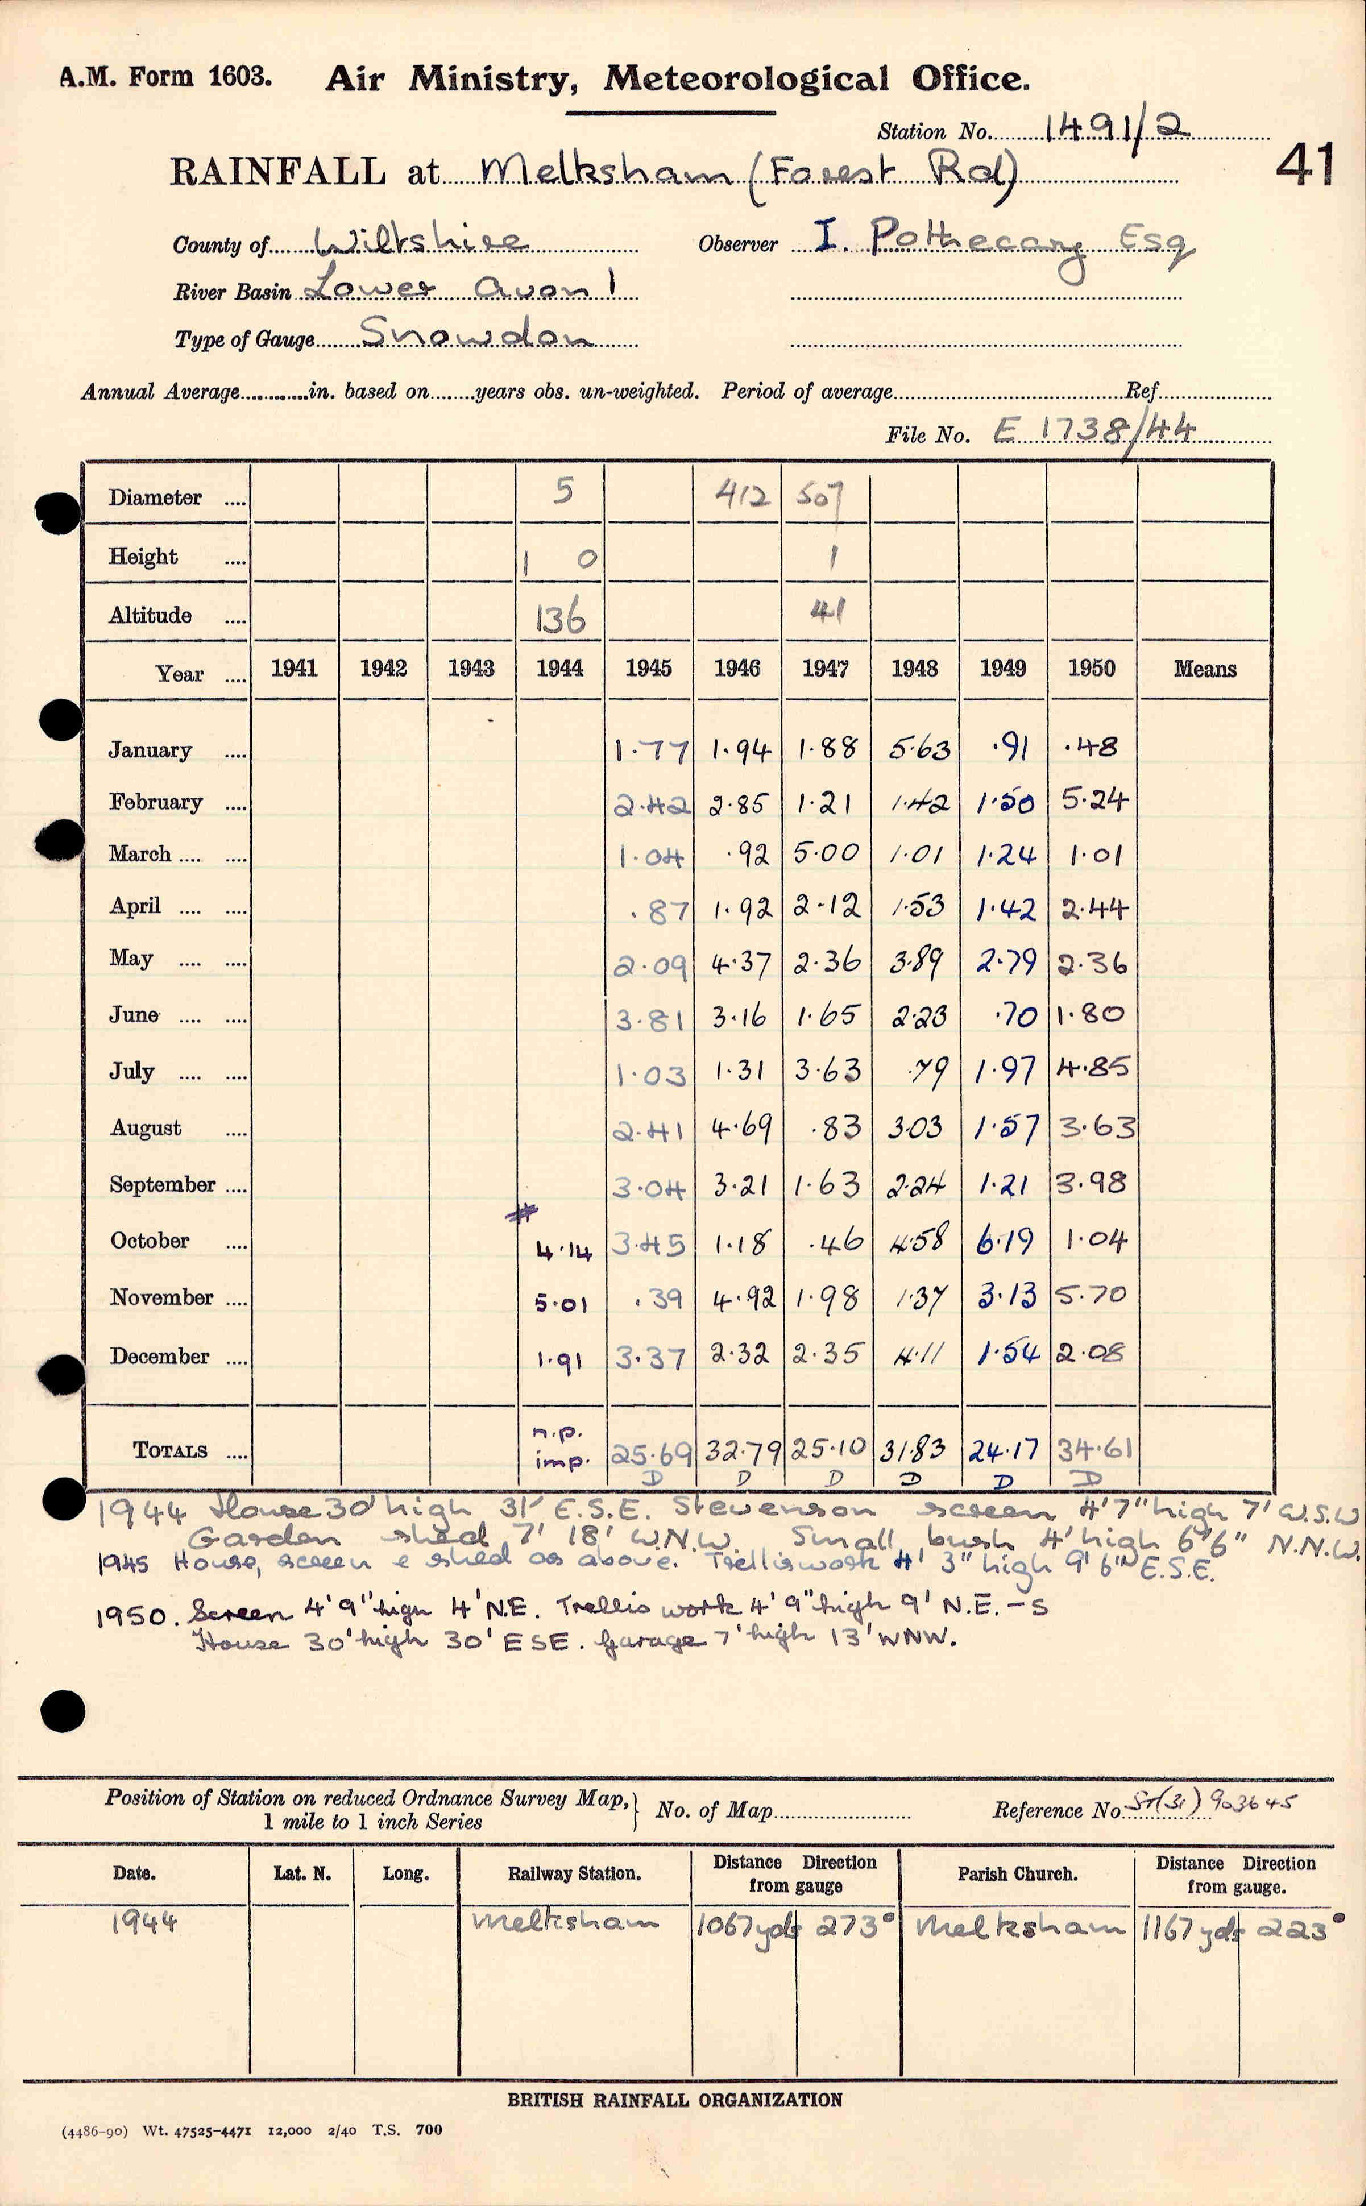 A.M. Form 1603. Air Ministry, Meteorological Office.
Station No. 1491/2
41
RAINFALL at Melksham (Forest Rd)
County of Wiltshire Observer I. Pothecary Esq
River Basin Lower Avon 1
Type of Gauge Snowdon
Annual Average............in. based on.......years obs. un-weighted. Period of average........Ref........
File No. E 1738/44
Diameter .... 5 412 507
Height .... 1 0 1
Altitude .... 136 41
Year .... 1941 1942 1943 1944 1945 1946 1947 1948 1949 1950 Means
January .... 1.77 1.94 1.88 5.63 .91 .48
February .... 2.42 2.85 1.21 1.42 1.50 5.24
March .... .... 1.04 .92 5.00 1.01 1.24 1.01
April .... .... .87 1.92 2.12 1.53 1.42 2.44
May .... .... 2.09 4.37 2.36 3.89 2.79 2.36
June .... .... 3.81 3.16 1.65 2.23 .70 1.80
July .... .... 1.03 1.31 3.63 .79 1.97 4.85
August .... 2.41 4.69 .83 3.03 1.57 3.63
September .... 3.04 3.21 1.63 2.24 1.21 3.98
October .... # 4.14 3.45 1.18 .46 4.58 6.19 1.04
November .... 5.01 .39 4.92 1.98 1.37 3.13 5.70
December .... 1.91 3.37 2.32 2.35 4.11 1.54 2.08
TOTALS .... n.p. imp. 25.69 32.79 25.10 31.83 24.17 34.61
D D D D D D
1944 House 30' high 31' E.S.E. Stevenson screen 4'7" high 7' W.S.W
Garden shed 7' 18' W.N.W. Small bush 4' high 6'6" N.N.W.
1945 House, screen & shed as above. Trelliswork 4' 3" high 9'6" E.S.E.
1950. Screen 4'9" high 4' N.E. Trellis work 4'9" high 9' N.E. – S
House 30' high 30' ESE. Garage 7' high 13' WNW.
Position of Station on reduced Ordnance Survey Map,} No. of Map........ Reference No. ST(31) 903645
1 mile to 1 inch Series
Date. Lat. N. Long. Railway Station. Distance Direction from gauge Parish Church. Distance Direction from gauge.
1944 Melksham 1067 yds 273° Melksham 1167 yds 223°
BRITISH RAINFALL ORGANIZATION
(4486-90) Wt. 47525-4471 12,000 2/40 T.S. 700